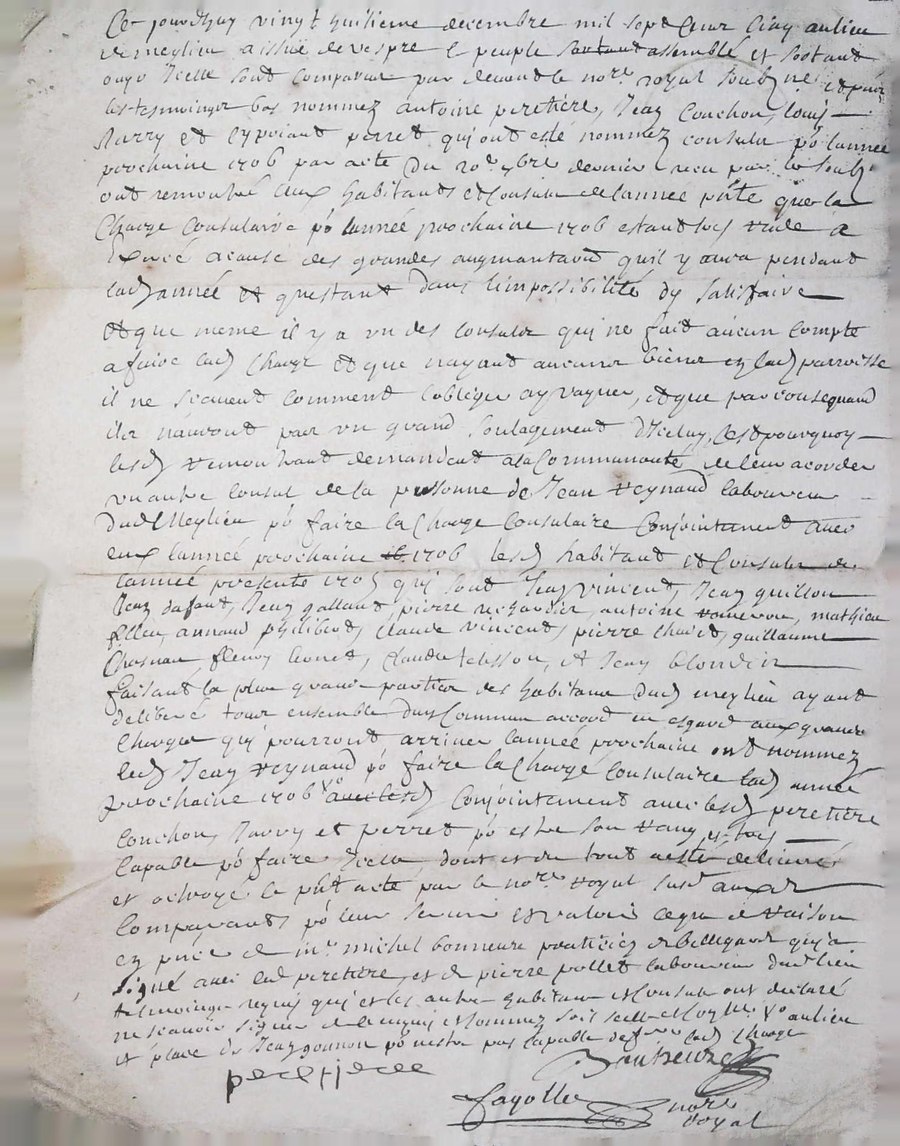 Ce jourdhuy vingt huitieme decembre mil sept cent cinq au lieu
de meylieu a issue de vespre le peuple sortant assemblé et sortant
ouyr icelle sont comparus par devant le nore royal soubzne et pñts
les tesmoings bas nommez antoine peretiere, Jean Couchon, Louis
Barry et Cypriant perret qui ont esté nommez consuls po lannée
prochaine 1706 par acte du 20e 9bre dernier receu par le soubz
ont remontré aux habitants et Consuls de lannée pñte que la
Charge Consulaire po lannée prochaine 1706 estant tres rude a
Exercé a cause des grandes augmantaõns quil y aura pendant
lad année et questant dans limpossibilité dy satisfaire
et que meme il y a un des Consuls qui ne fait aucun Compte
a faire lad Charge et que nayant aucuns biens en lad parroisse
il ne scauent comment lobliger a y vaquer, et que par consequand
ils nauront pas un grand soulagement diceluy, Cest pourquoy
lesd remontrant demandent a la Communauté de leur acorder
un autre Consul de la personne de Jean reynaud laboureur
dud Meylieu po faire la Charge Consulaire Conjointement avec
eux lannée prochaine 1706 lesd habitant et Consuls de
lannée presente 1705 qui sont Jean vincent, Jean guillon
Jean dafaut, Jean galland, pierre, antoine, mathieu
annaud philibert, Claude vincent, pierre, guillaume
fleury, Claude, et Jean blondin
faisant la plus grande partie des habitans dud meylieu ayant
deliberé tous ensemble dun Commun accord en esgard aux grandes
Charges qui pourront arriver lannée prochaine ont nommez
led Jean reynaud po faire la Charge Consulaire lad année
prochaine 1706 avec lesd Conjointement avec lesd peretiere
Couchon, Barry et perret po estre son rang et tres
Capable po faire Icelle, dont et du tout a esté
et octroyé le pñt acte par le nore royal susd auxd
Comparants po leur servir et valoir ce que de raison
en pñce de mre michel bonneure praticien de Bellegarde qui a
signé avec led peretiere, et de pierre pollet laboureur dud lieu
tesmoings requis qui et les autres habitans et Consuls ont declaré
ne scavoir signer de ce enquis et sommez soit scellé au lieu
et place de Jean po nestre pas Capable de faire lad Charge
peretiere
Bonheure
Fayolle nore
royal